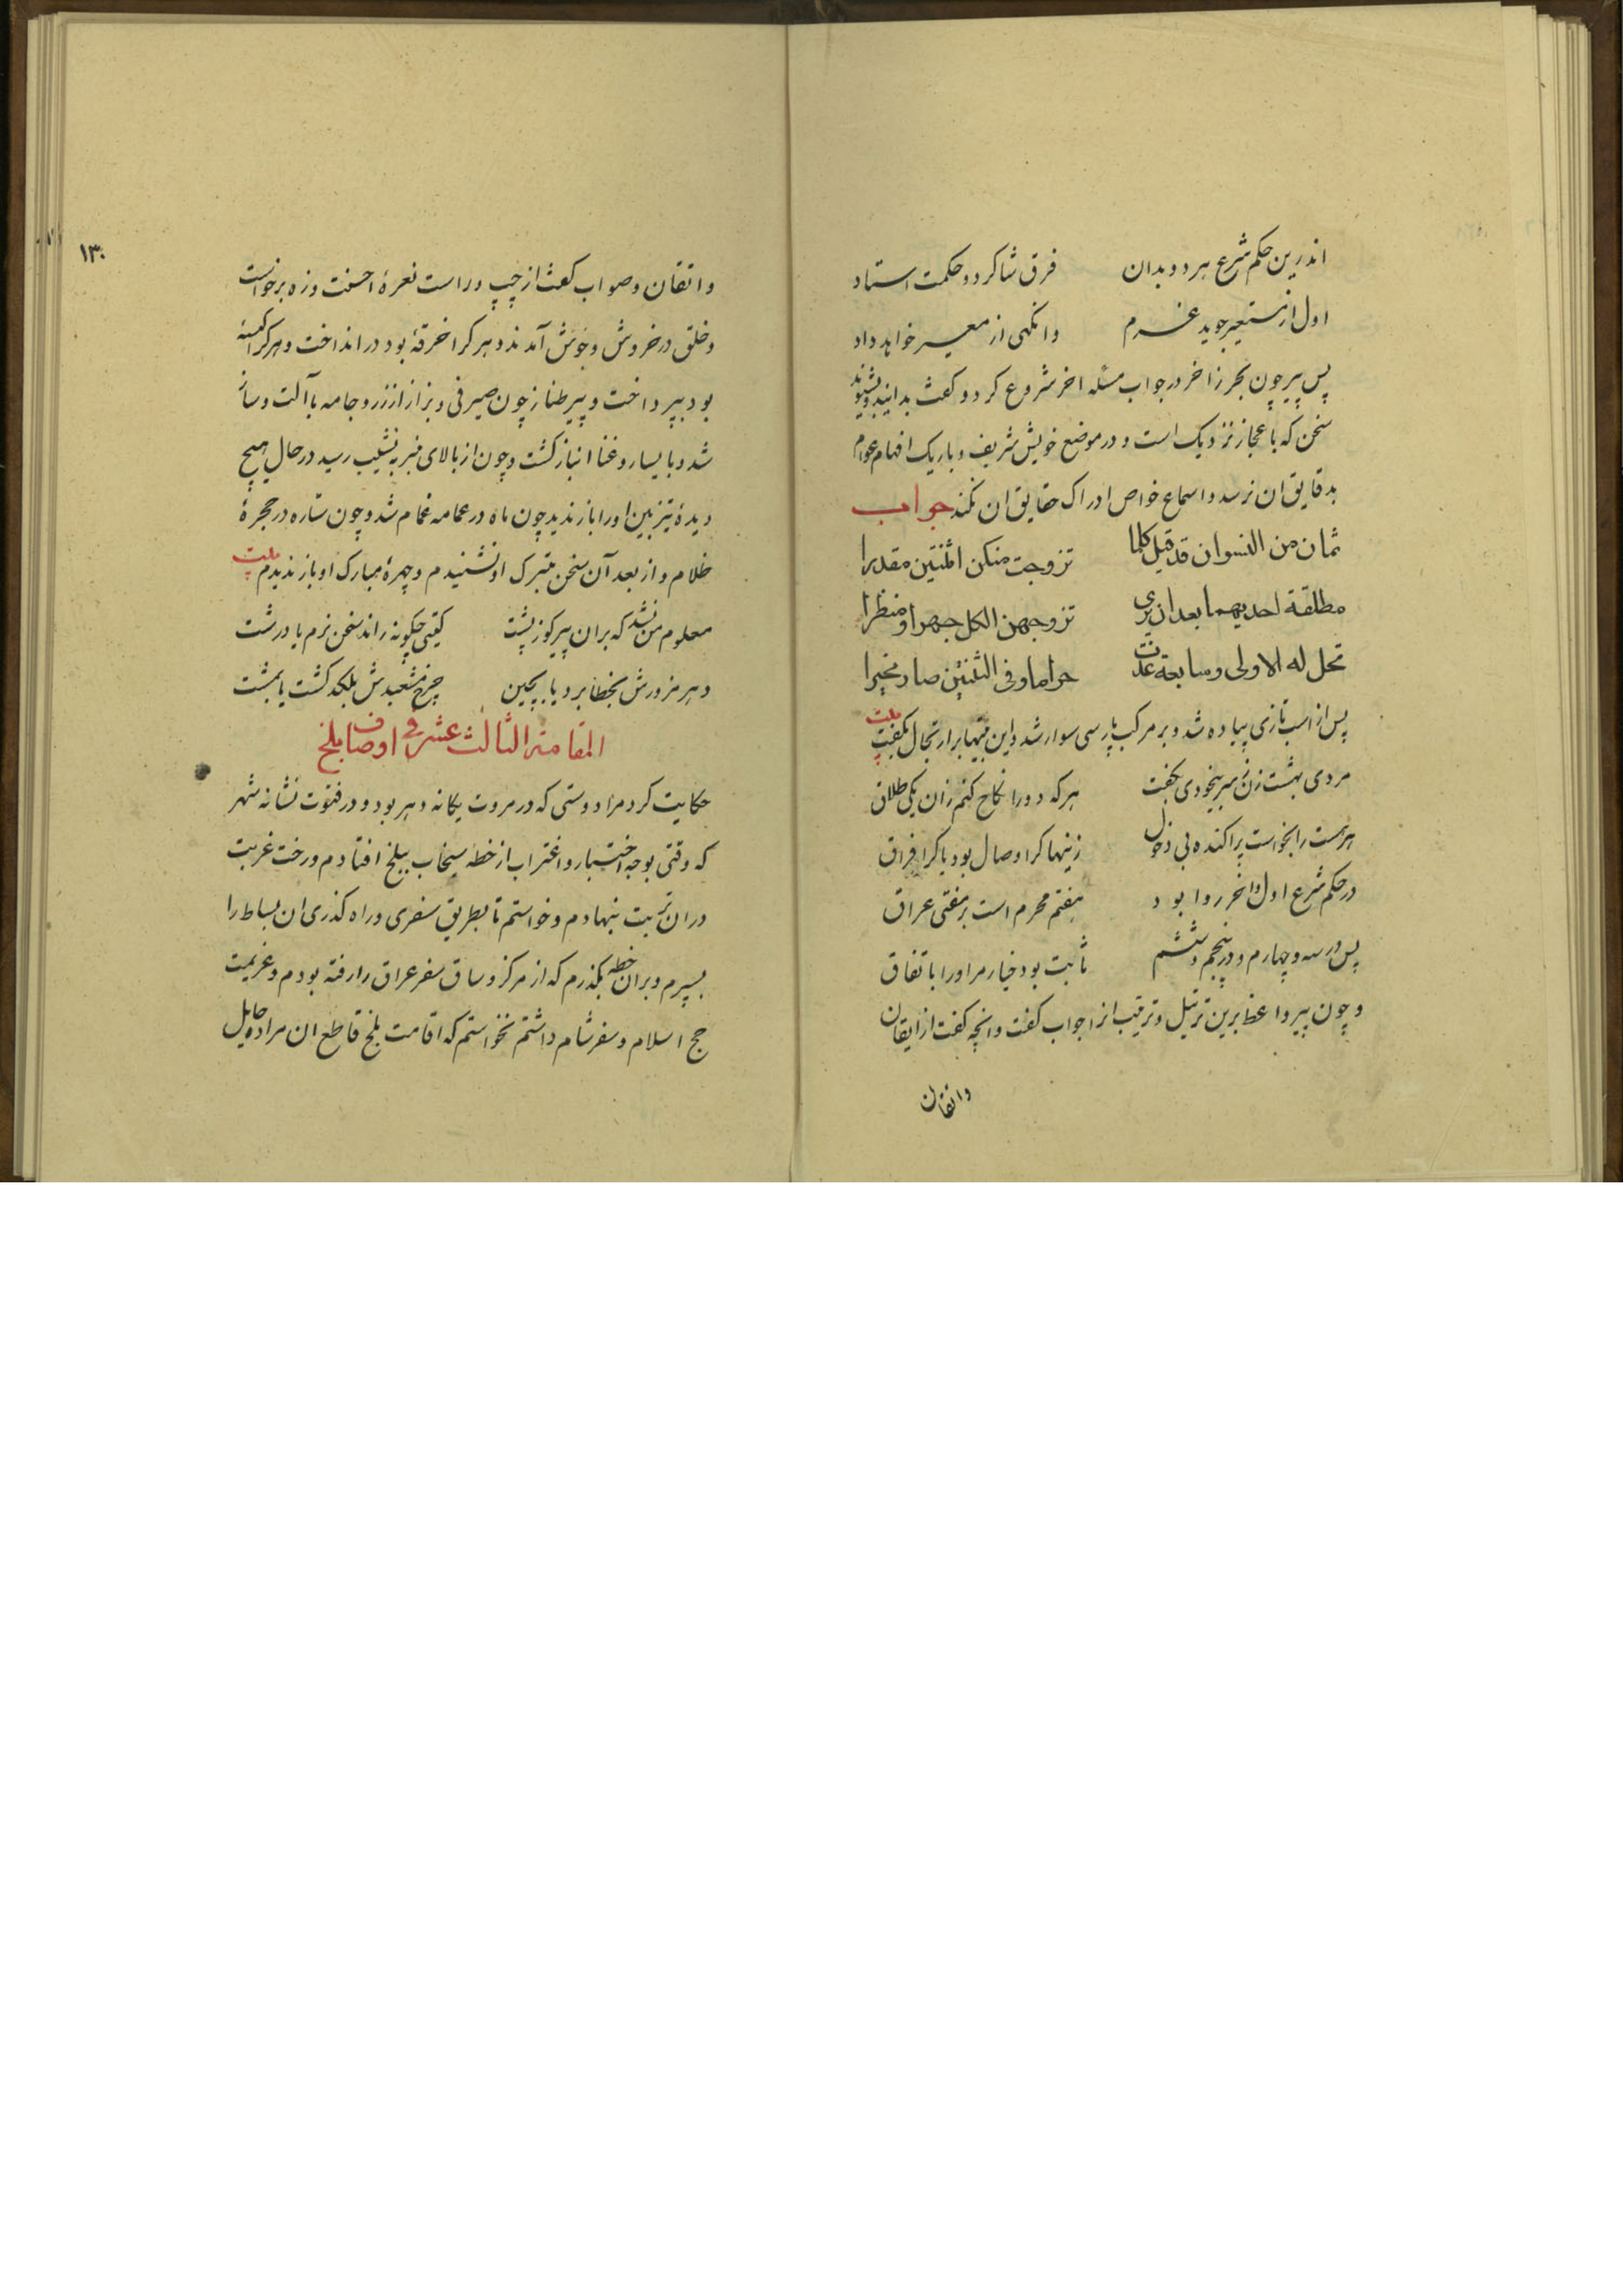 اندرین حکم شرع هر دو بدان فرق شاکرد و حکمت استاد
اول از مستعیر جوید غرم وانکهی از معیر خواهد داد
پس پیر چون بحر زاخر در جواب مسئله اخر شروع کرد و کفت بدانید و بشنوید
سخن که باعجاز نزدیک است و در موضع خویش شریف و باریک افهام عوام
بدقایق ان نرسد و اسماع خواص ادراک حقایق ان نکند جواب
ثمان من النسوان قد قیل کلما تزوجت منکن اثنتین مقدرا
مطلقة احدیهما بعد ان یری تزوجهن الکل جهرا و منظرا
تحل له الاولی و سابعة غدت حراما و فی الثنتین صار مخیرا
پس از اسب تازی پیاده شد و بر مرکب پارسی سوار شد و این بیتها بر ارتجال بکفت بیت
مردی بهشت زن بسر بیخودی بکفت هر که دو را نکاح کنم زان یکی طلاق
هر هشت را بخواست پراکنده بی دخول زینها کرا وصال بود یا کرا فراق
در حکم شرع اول و اخر روا بود هفتم محرم است بر مفتی عراق
پس در سه و چهارم و در پنجم و ششم ثابت بود خیار مر او را باتفاق
و چون پیر واعظ برین ترتیل و ترتیب انرا جواب کفت و انچه کفت از ایقان
واتقان
۱۳۰
و اتقان و صواب کفت از چپ و راست نعرهٔ احسنت و زه برخواست
و خلق در خروش و جوش آمدند و هر کرا خرقهٔ بود در انداخت و هر کرا کیسهٔ
بود بپرداخت و پیر طناز چون صیرفی و بزاز از زر و جامه با آلت و ساز
شد و با یسار و غنا انباز کشت و چون از بالای منبر به نشیب رسید در حال هیچ
دیدهٔ تیزبین او را باز ندید چون ماه در عمامه غمام شد و چون ستاره در حجرهٔ
ظلام و از بعد آن سخن متبرک او نشنیدم و چهرهٔ مبارک او باز ندیدم بیت
معلوم من نشد که بران پیر کوز پشت کیتی چکونه راند سخن نرم یا درشت
دهر مزورش بخطا برد یا بچین چرخ مشعبدش بلکد کشت یا بمشت
المقامة الثالث عشر فی اوصاف بلخ
حکایت کرد مرا دوستی که در مروت یکانه دهر بود و در فتوت نشانه شهر
که وقتی بوجه اختیار و اغتراب از خطه سیخاب ببلخ افتادم و رخت غربت
دران تربت بنهادم و خواستم تا بطریق سفری و راه کذری ان بساط را
بسپرم و بران خطه بکذرم که از مرکز و ساق سفر عراق را رفته بودم و عزیمت
حج اسلام و سفر شام داشتم نخواستم که اقامت بلخ قاطع ان مراد و حایل